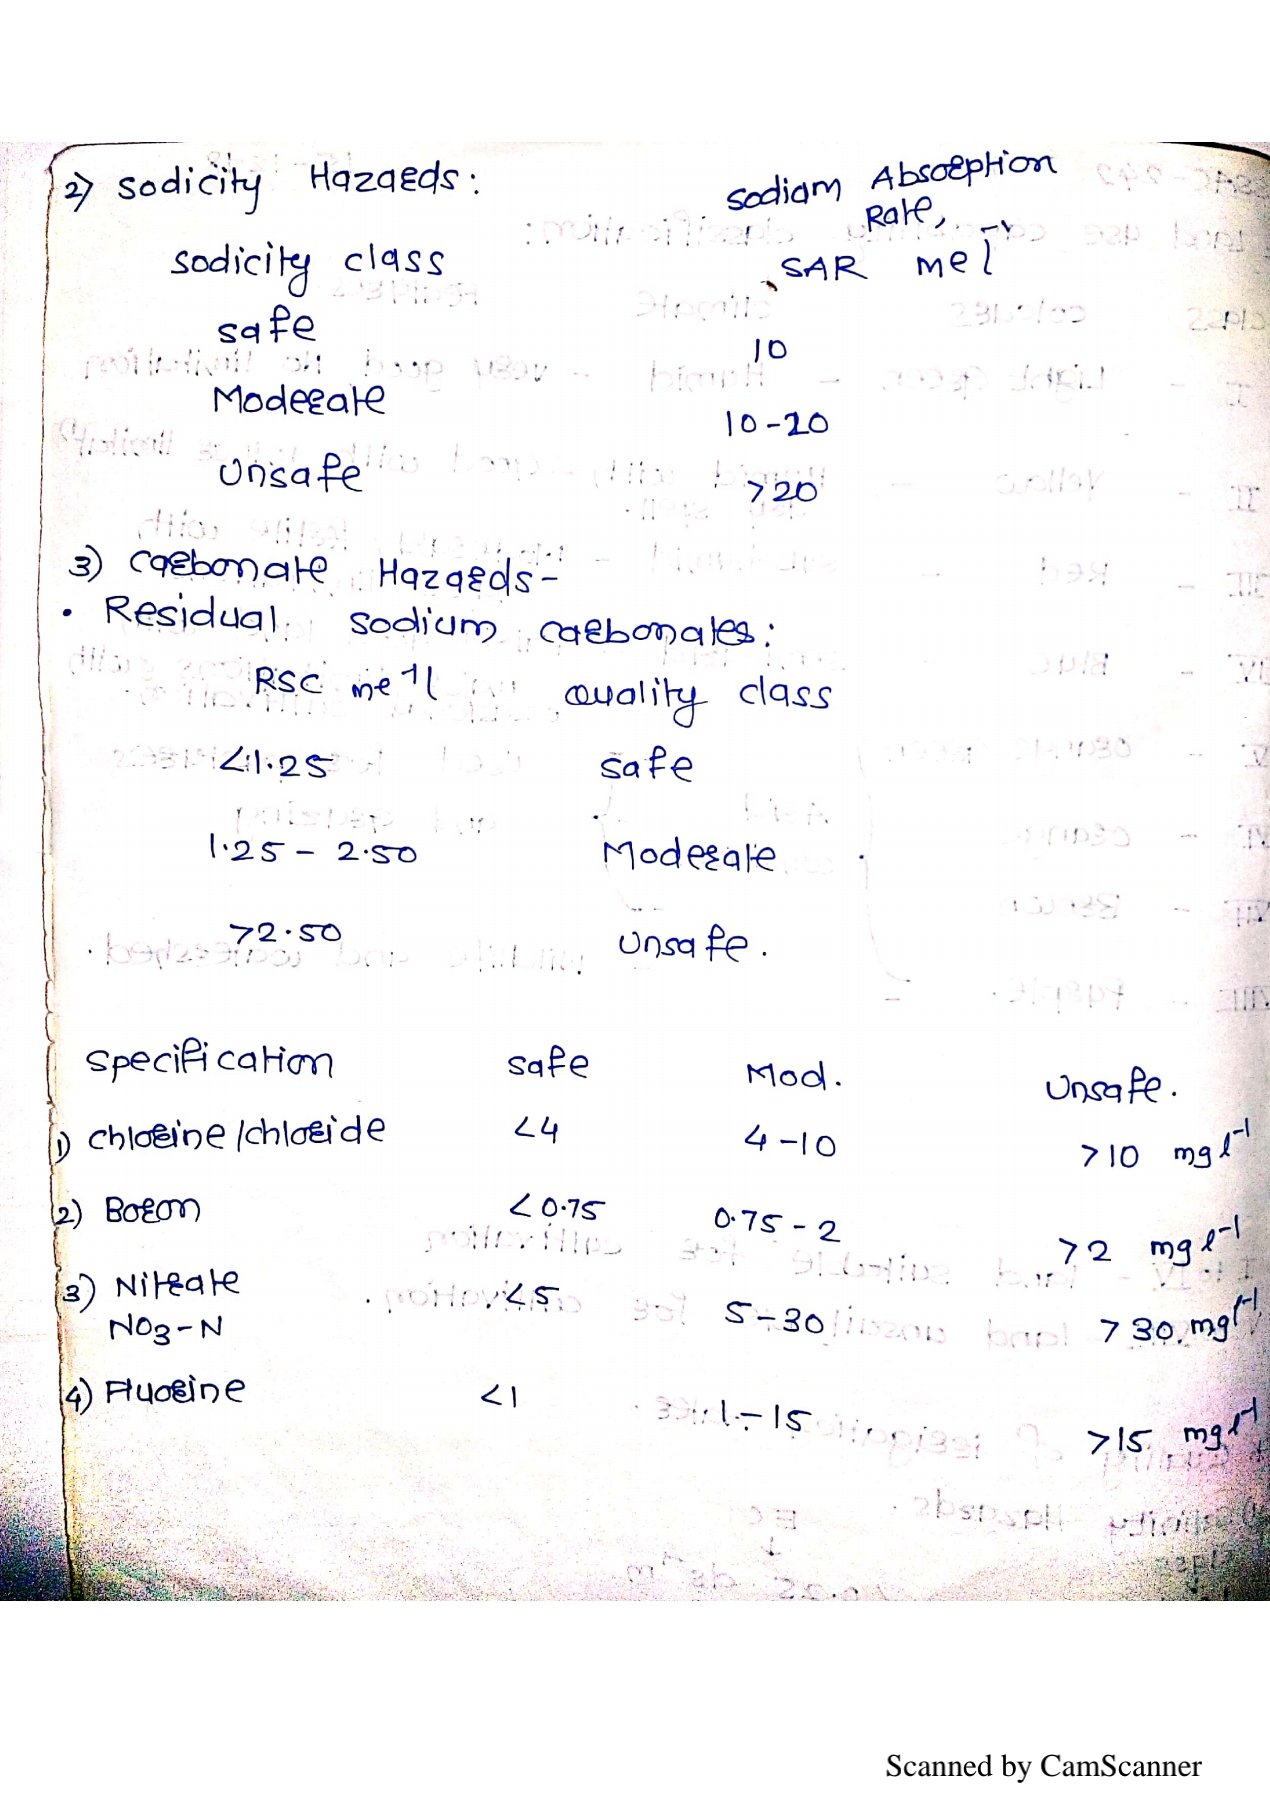 2) Sodicity Hazards:
Sodiam Absorption
Rate,
Sodicity class SAR mel⁻¹
safe 10
Moderate 10-20
Unsafe >20
3) Carbonate Hazards-
• Residual Sodium Carbonates:
RSC me⁻¹l Quality class
<1.25 safe
1.25 - 2.50 Moderate
>2.50 Unsafe.
Specification safe Mod. Unsafe.
1) Chlorine/chloride <4 4-10 >10 mg l⁻¹
2) Boron <0.75 0.75-2 >2 mg l⁻¹
3) Nitrate <5 5-30 >30 mg l⁻¹
NO3-N
4) Fluorine <1 1-15 >15 mg l⁻¹
Scanned by CamScanner